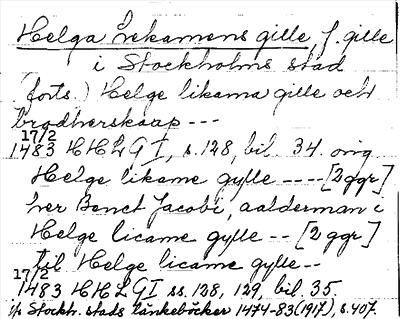 Helga Lekamens gille, f. gille
i Stockholms stad
(forts.) Helge likama gille och
brodherskaap ---
17/2
1483 HHLGI, s. 128, bil. 34 orig.
Helge likame gylle ---- [3 ggr]
her Benct Jacobi, aalderman i
Helge licame gylle -- [2 ggr]
til Helge licame gylle --
17/2
1483 HHLGI ss. 128, 129, bil. 35
Stockh. stads tänkeböcker 1474-83 (1917), s. 407.